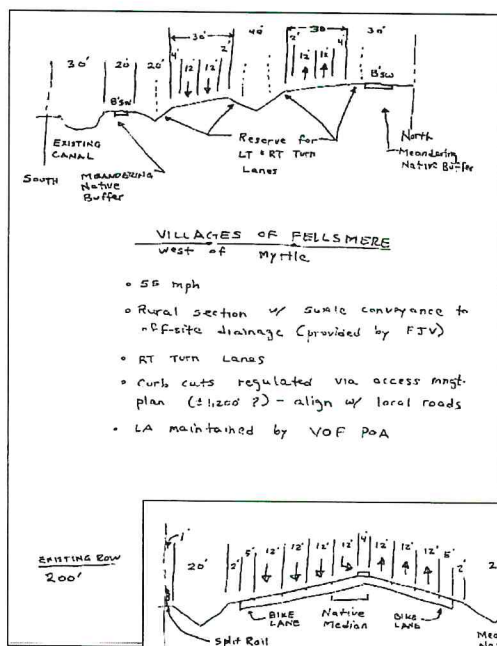 30'
40'
30'
30'
20'
20'
4'
12'
12'
2'
2'
12'
12'
4'
30'
8'SW
8'SW
EXISTING
CANAL
SOUTH
MEANDERING
Native
Buffer
Reserve for
LT & RT Turn
Lanes
North
Meandering
Native Buffer
VILLAGES OF FELLSMERE
West of Myrtle
• 55 mph
• Rural section w/ swale conveyance to
off-site drainage (provided by FJV)
• RT Turn Lanes
• Curb cuts regulated via access mngt.
plan (±1,200' ?) - align w/ local roads
• LA maintained by VOF POA
EXISTING ROW
200'
1'
20'
2'
5'
12'
12'
12'
12'
4'
12'
12'
12'
5'
2'
BIKE
LANE
Native
Median
BIKE
LANE
Split Rail